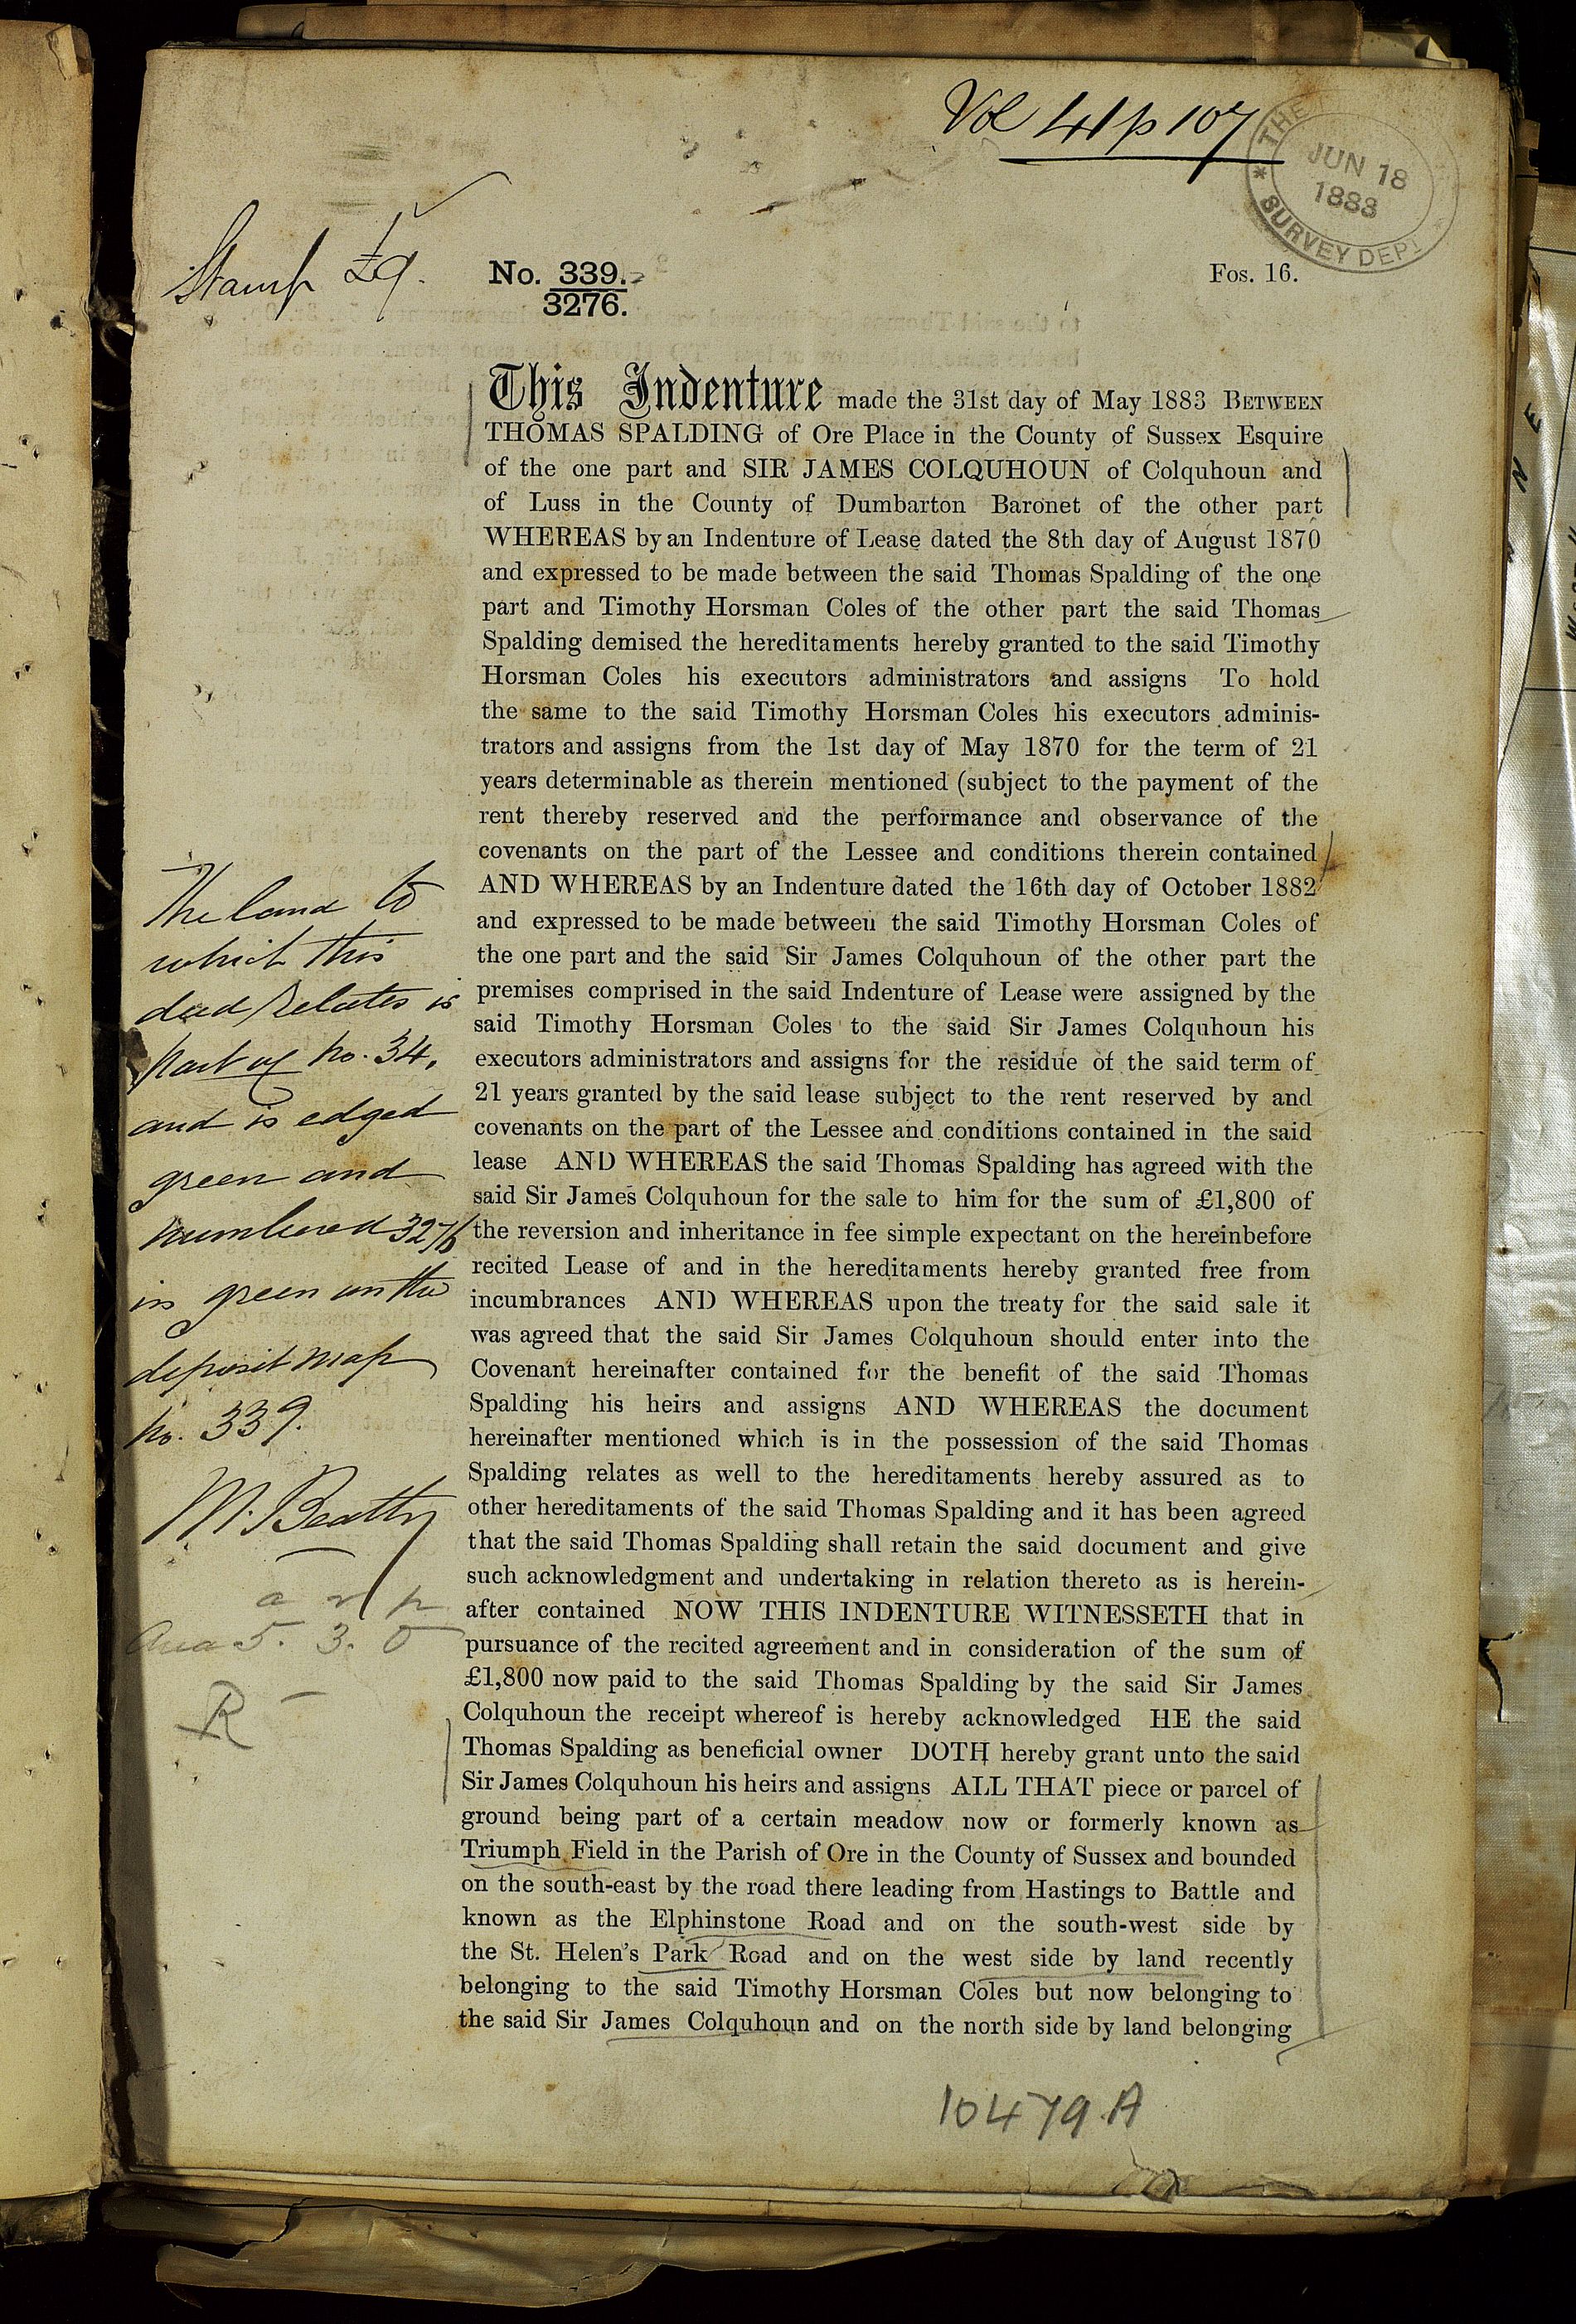 Vol 41 p 107
THE
JUN 18
1883
SURVEY DEPT
Stamp £9.
No. 339.
3276.
Fos. 16.
This Indenture made the 31st day of May 1883 BETWEEN
THOMAS SPALDING of Ore Place in the County of Sussex Esquire
of the one part and SIR JAMES COLQUHOUN of Colquhoun and
of Luss in the County of Dumbarton Baronet of the other part
WHEREAS by an Indenture of Lease dated the 8th day of August 1870
and expressed to be made between the said Thomas Spalding of the one
part and Timothy Horsman Coles of the other part the said Thomas
Spalding demised the hereditaments hereby granted to the said Timothy
Horsman Coles his executors administrators and assigns To hold
the same to the said Timothy Horsman Coles his executors adminis-
trators and assigns from the 1st day of May 1870 for the term of 21
years determinable as therein mentioned (subject to the payment of the
rent thereby reserved and the performance and observance of the
covenants on the part of the Lessee and conditions therein contained
AND WHEREAS by an Indenture dated the 16th day of October 1882
and expressed to be made between the said Timothy Horsman Coles of
the one part and the said Sir James Colquhoun of the other part the
premises comprised in the said Indenture of Lease were assigned by the
said Timothy Horsman Coles to the said Sir James Colquhoun his
executors administrators and assigns for the residue of the said term of
21 years granted by the said lease subject to the rent reserved by and
covenants on the part of the Lessee and conditions contained in the said
lease AND WHEREAS the said Thomas Spalding has agreed with the
said Sir James Colquhoun for the sale to him for the sum of £1,800 of
the reversion and inheritance in fee simple expectant on the hereinbefore
recited Lease of and in the hereditaments hereby granted free from
incumbrances AND WHEREAS upon the treaty for the said sale it
was agreed that the said Sir James Colquhoun should enter into the
Covenant hereinafter contained for the benefit of the said Thomas
Spalding his heirs and assigns AND WHEREAS the document
hereinafter mentioned which is in the possession of the said Thomas
Spalding relates as well to the hereditaments hereby assured as to
other hereditaments of the said Thomas Spalding and it has been agreed
that the said Thomas Spalding shall retain the said document and give
such acknowledgment and undertaking in relation thereto as is herein-
after contained NOW THIS INDENTURE WITNESSETH that in
pursuance of the recited agreement and in consideration of the sum of
£1,800 now paid to the said Thomas Spalding by the said Sir James
Colquhoun the receipt whereof is hereby acknowledged HE the said
Thomas Spalding as beneficial owner DOTH hereby grant unto the said
Sir James Colquhoun his heirs and assigns ALL THAT piece or parcel of
ground being part of a certain meadow now or formerly known as
Triumph Field in the Parish of Ore in the County of Sussex and bounded
on the south-east by the road there leading from Hastings to Battle and
known as the Elphinstone Road and on the south-west side by
the St. Helen's Park Road and on the west side by land recently
belonging to the said Timothy Horsman Coles but now belonging to
the said Sir James Colquhoun and on the north side by land belonging
The land to
which this
deed relates is
part of No. 34,
and is edged
green and
numbered 3276
in green on the
deposit map
No. 339.
M. Beatty
a r p
Area 5. 3. 0
R
10479.A